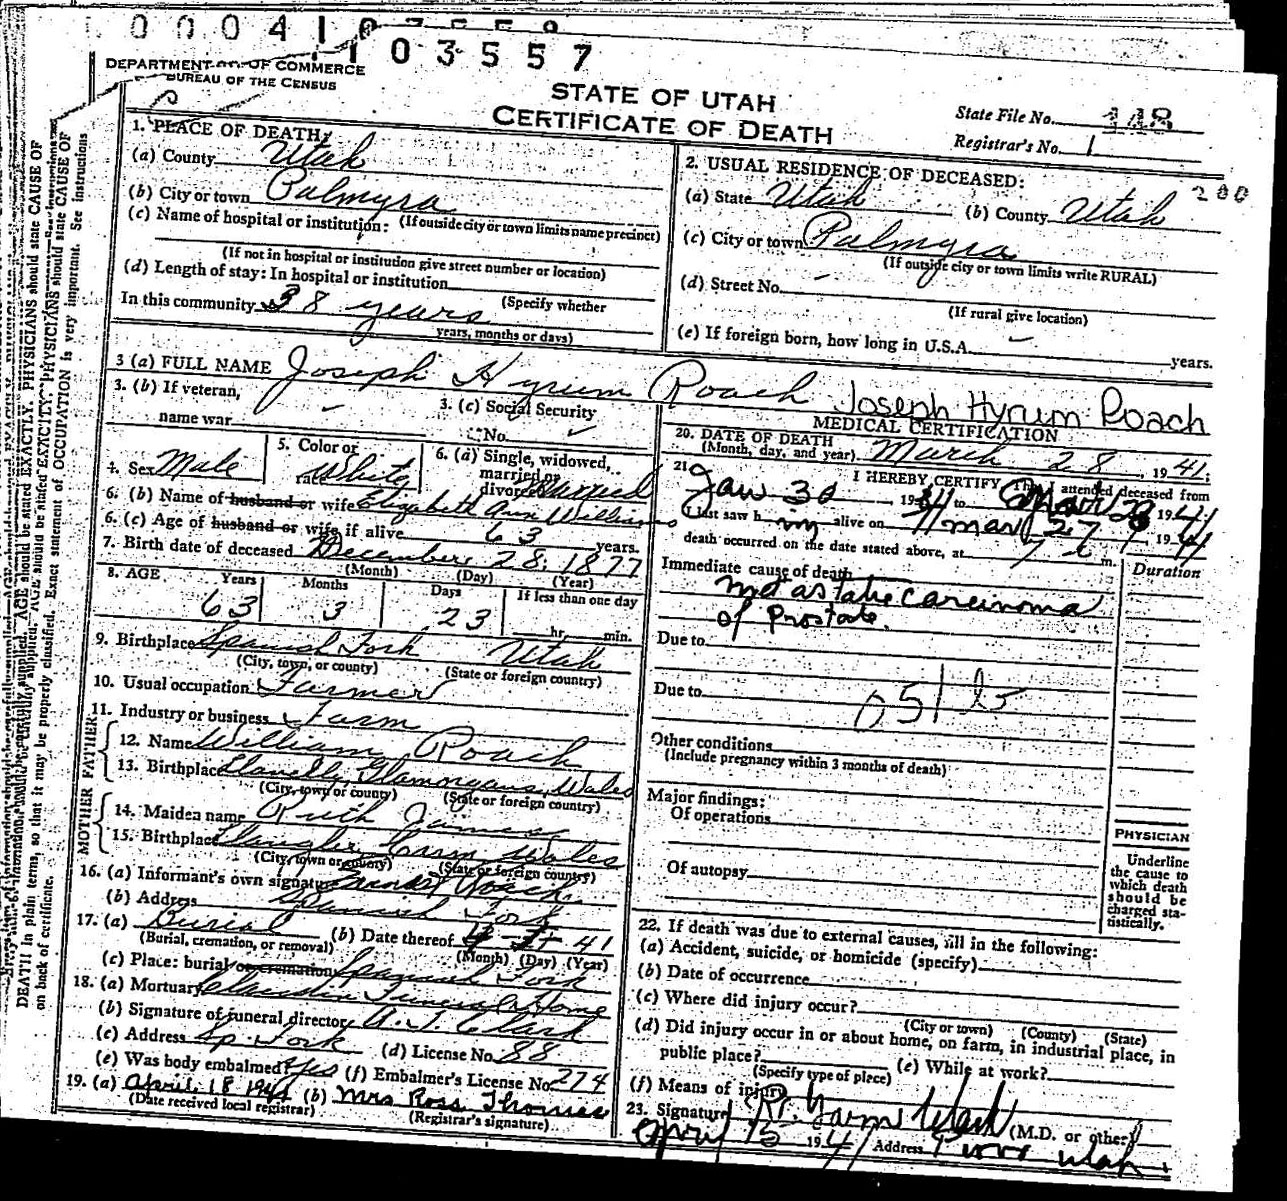 00041
103557
DEPARTMENT OF COMMERCE
BUREAU OF THE CENSUS
STATE OF UTAH
CERTIFICATE OF DEATH
State File No. 148
Registrar's No. 1
200
1. PLACE OF DEATH:
(a) County Utah
(b) City or town Palmyra
(If outside city or town limits name precinct)
(c) Name of hospital or institution:
(If not in hospital or institution give street number or location)
(d) Length of stay: In hospital or institution
(Specify whether
In this community 38 years
years, months or days)
2. USUAL RESIDENCE OF DECEASED:
(a) State Utah (b) County Utah
(c) City or town Palmyra
(If outside city or town limits write RURAL)
(d) Street No. -
(If rural give location)
(e) If foreign born, how long in U.S.A. - years.
3 (a) FULL NAME Joseph Hyrum Roach Joseph Hyrum Roach
3. (b) If veteran,
name war -
3. (c) Social Security
No.
4. Sex Male
5. Color or
race White
6. (a) Single, widowed,
married or
divorced Married
6. (b) Name of husband or wife Elizabeth Ann Williams
6. (c) Age of husband or wife, if alive 63 years.
7. Birth date of deceased December 28, 1877
(Month) (Day) (Year)
8. AGE Years 63 Months 3 Days 23 If less than one day
hr. min.
9. Birthplace Spanish Fork Utah
(City, town, or county) (State or foreign country)
10. Usual occupation Farmer
11. Industry or business Farm
FATHER
12. Name William Roach
13. Birthplace Llanelly, Glamorgans, Wales
(City, town or county) (State or foreign country)
MOTHER
14. Maiden name Ruth James
15. Birthplace Wales
(City, town or county) (State or foreign country)
16. (a) Informant's own signature Roach
(b) Address Spanish Fork
17. (a) Burial (b) Date thereof 41
(Burial, cremation, or removal) (Month) (Day) (Year)
(c) Place: burial or cremation Spanish Fork
18. (a) Mortuary Funeral Home
(b) Signature of funeral director A. J. Clark
(c) Address Sp. Fork (d) License No. 88
(e) Was body embalmed? Yes (f) Embalmer's License No. 274
19. (a) April 18 1941 (b) Mrs Ross Thomas
(Date received local registrar) (Registrar's signature)
MEDICAL CERTIFICATION
20. DATE OF DEATH
(Month, day, and year) March 28, 1941
21. I HEREBY CERTIFY, That I attended deceased from
Jan 30 19 41 to Mar 28 1941
I last saw him alive on Mar 27, 1941
death occurred on the date stated above, at 7 m.
Immediate cause of death
Duration
Metastatic Carcinoma
of Prostate.
Due to
Due to
051
Other conditions
(Include pregnancy within 3 months of death)
Major findings:
Of operations
Of autopsy
PHYSICIAN
Underline
the cause to
which death
should be
charged sta-
tistically.
22. If death was due to external causes, fill in the following:
(a) Accident, suicide, or homicide (specify)
(b) Date of occurrence
(c) Where did injury occur?
(City or town) (County) (State)
(d) Did injury occur in or about home, on farm, in industrial place, in
public place? (e) While at work?
(Specify type of place)
(f) Means of injury
23. Signature (M.D. or other)
April 15 1941 Address Provo Utah